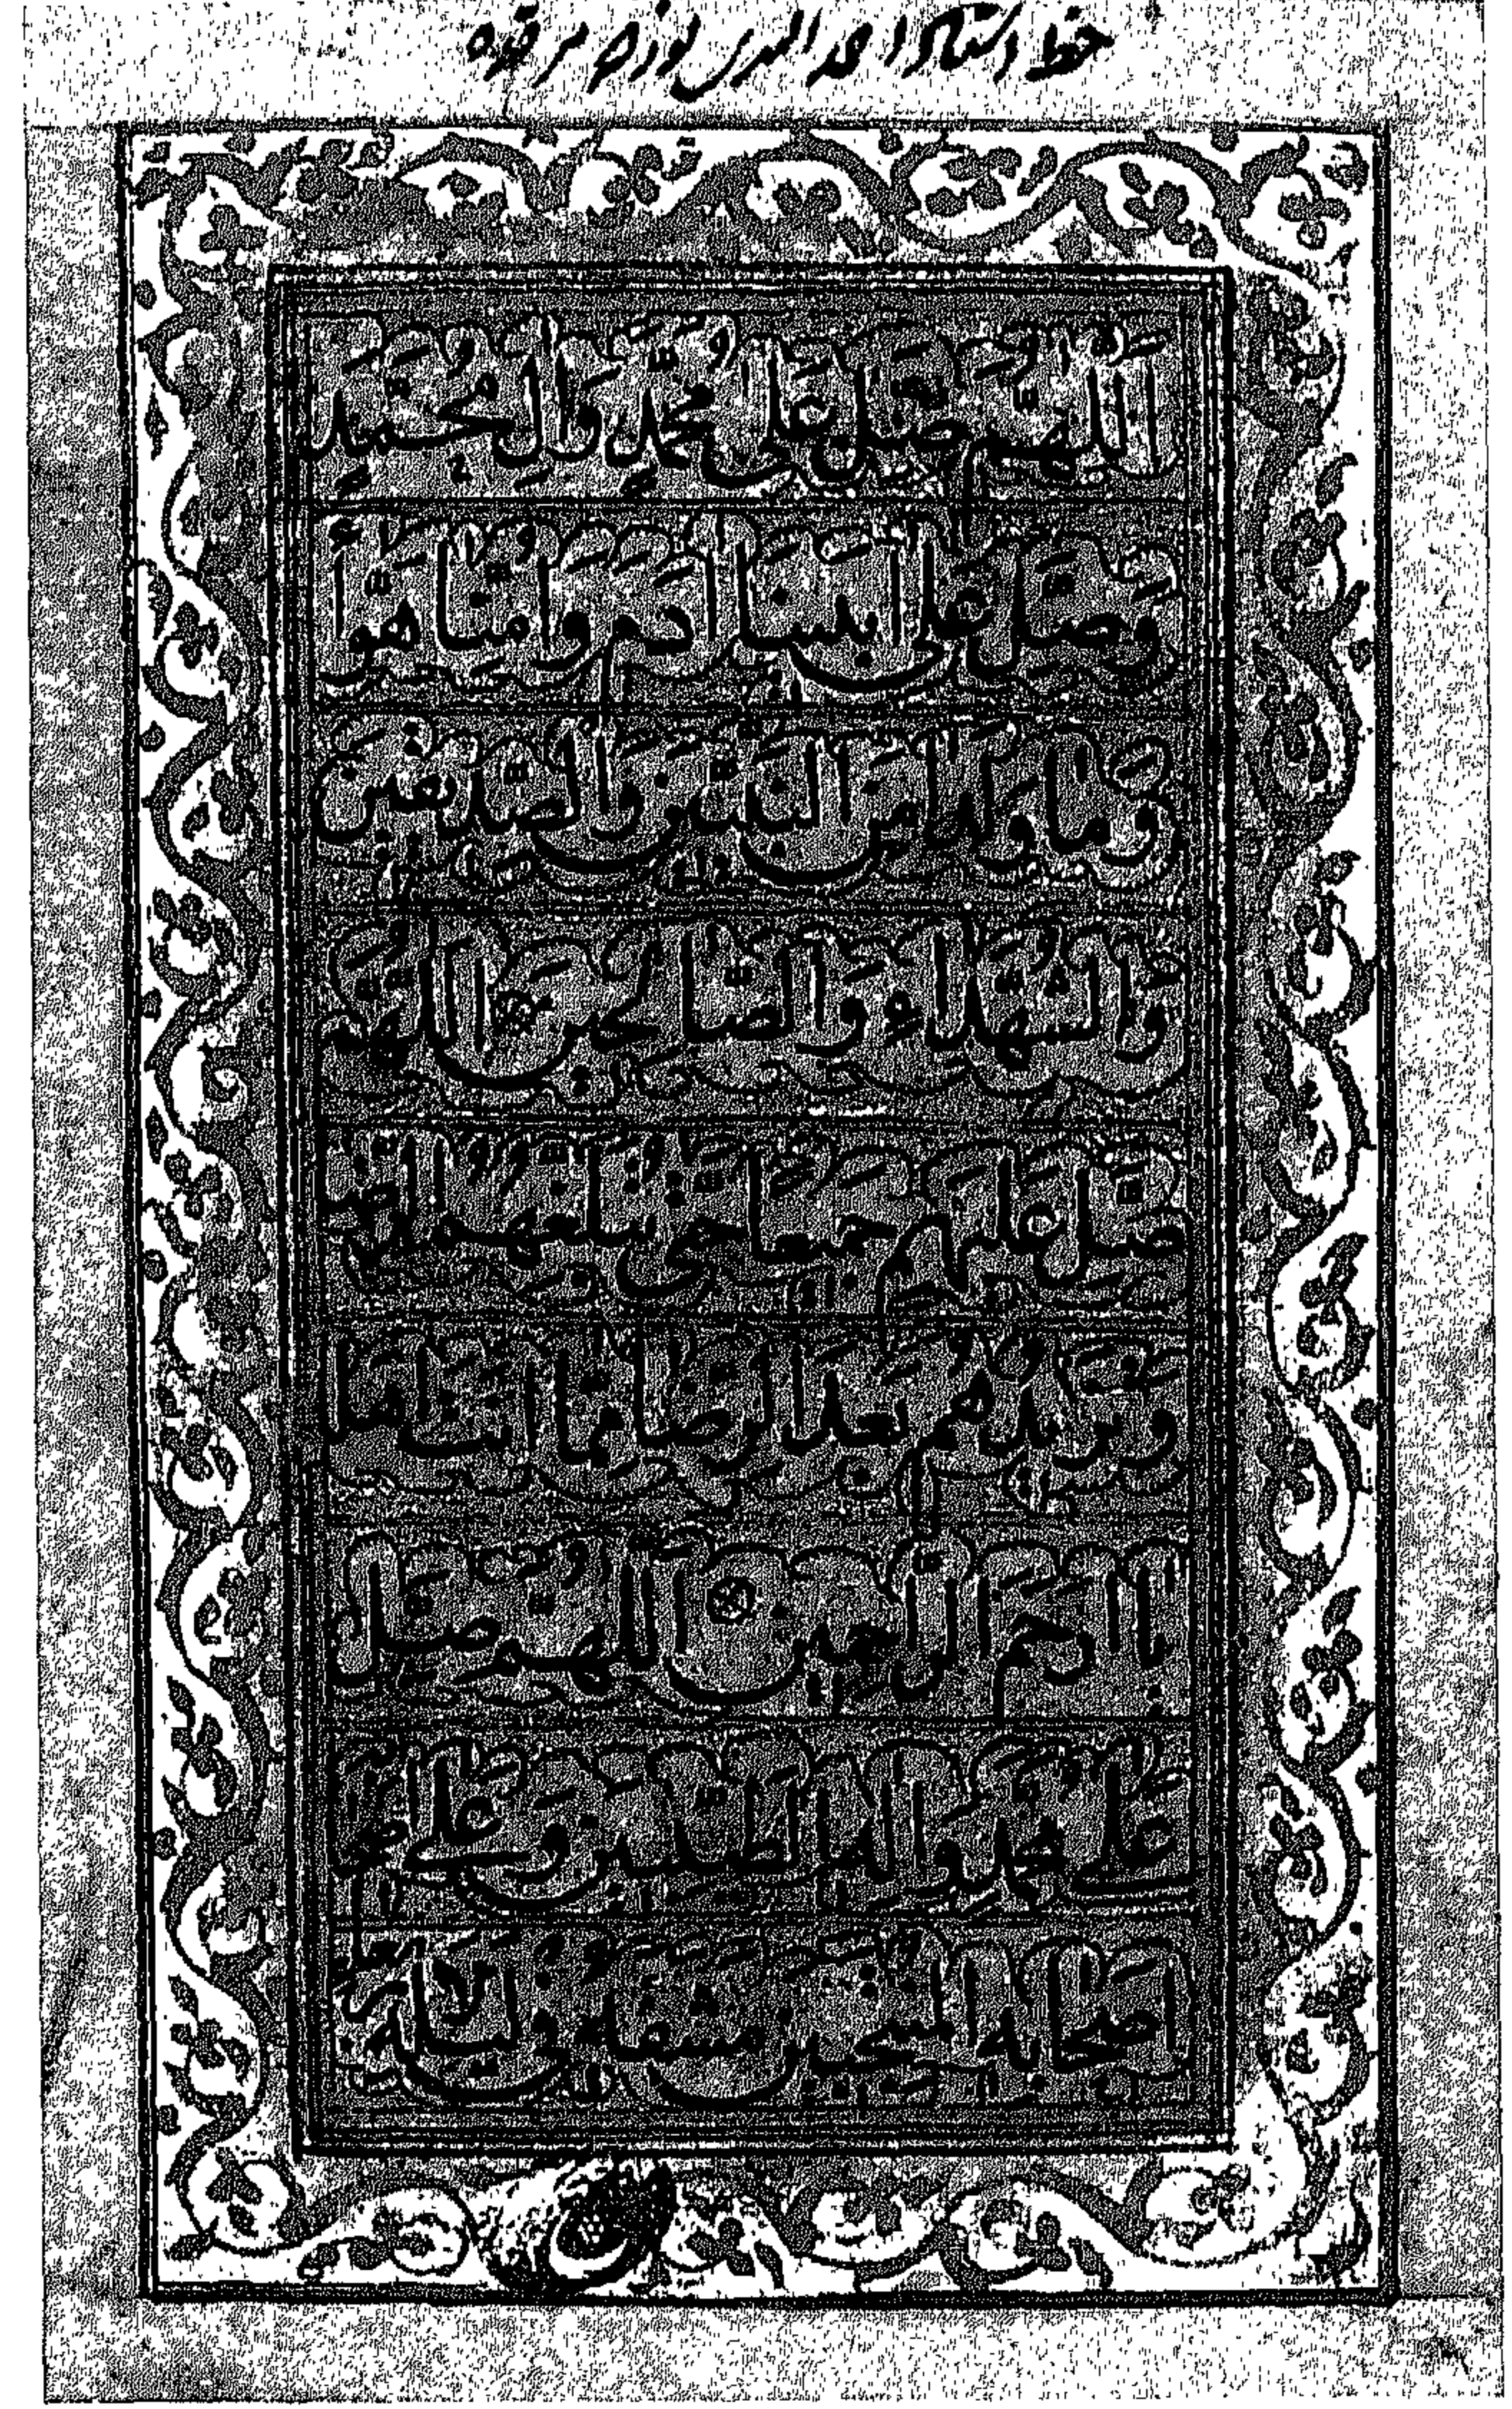 خط استاد احمد النیریزی نور الله مرقده
اَللّٰهُمَّ صَلِّ عَلٰى مُحَمَّدٍ وَاٰلِ مُحَمَّدٍ
وَصَلِّ عَلٰى اَبِينَا اٰدَمَ وَاُمِّنَا هَوَّاءَ
وَمَا وَلَدَا مِنَ النَّبِيِّينَ وَالصِّدِّيقِينَ
وَالشُّهَدَاءِ وَالصَّالِحِينَ اَللّٰهُمَّ
صَلِّ عَلَيْهِمْ جَمِيعًا حَتّٰى تُبَلِّغَهُمُ الرِّضَا
وَتَزِيدَهُمْ بَعْدَ الرِّضَا مِمَّا اَنْتَ اَهْلُهُ
يَا اَرْحَمَ الرَّاحِمِينَ اَللّٰهُمَّ صَلِّ
عَلٰى مُحَمَّدٍ وَاٰلِهِ الطَّيِّبِينَ وَعَلٰى
اَصْحَابِهِ الْمُنْتَجَبِينَ